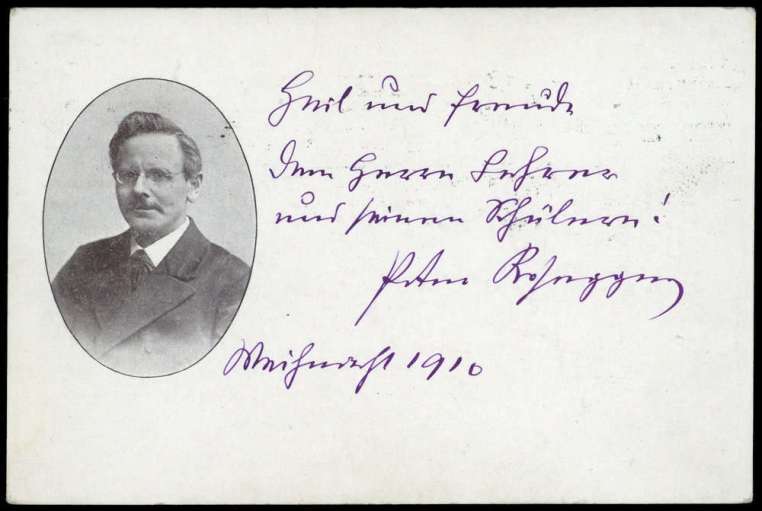 Heil und Freude
dem Herrn Lehrer
und seinen Schülern!
Peter Rosegger
Weihnacht 1910